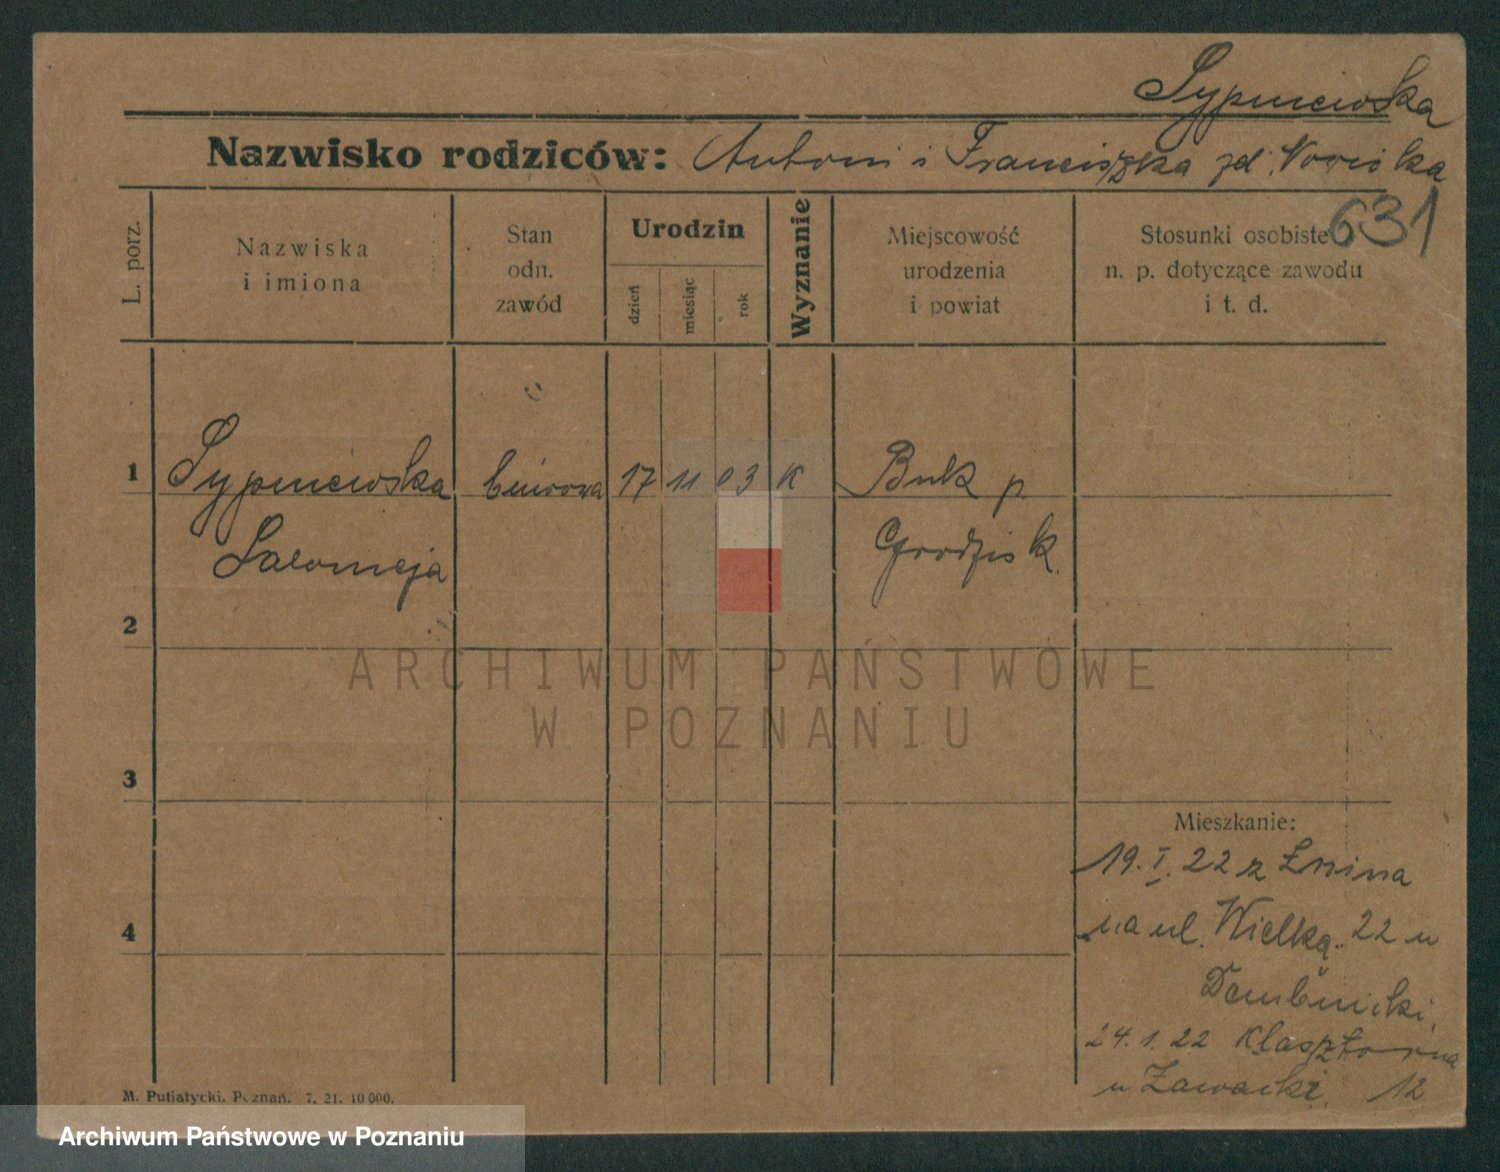 Sypniewska
Nazwisko rodziców: Antoni i Franciszka zd.
631
L. porz.
Nazwiska
i imiona
Stan
odn.
zawód
Urodzin
dzień
miesiąc
rok
Wyznanie
Miejscowość
urodzenia
i powiat
Stosunki osobiste
n. p. dotyczące zawodu
i t. d.
1 Sypniewska biurowa 17 11 03 K Buk p.
Salomeja Grodzisk.
2
ARCHIWUM PAŃSTWOWE
W POZNANIU
3
Mieszkanie:
19. I. 22 z Żnina
4
na ul. Wielką 22 u
Dembnicki.
24. 1. 22 Klasztorna
u Zawacki 12
M. Putiatycki. Poznań. 7. 21. 10 000.
Archiwum Państwowe w Poznaniu